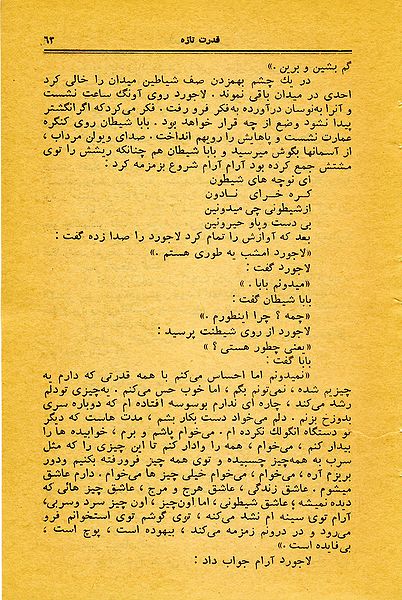 قدرت تازه ۶۳
گم بشین و برین .»
در یك چشم بهمزدن صف شیاطین میدان را خالی کرد
احدی در میدان باقی نموند . لاجورد روی آونگ ساعت نشست
و آنرا به‌نوسان درآورده به‌فکر فرو رفت . فکر می‌کرد که اگر انگشتر
پیدا نشود وضع از چه قرار خواهد بود . بابا شیطان روی کنگره
عمارت نشست و پاهایش را رویهم انداخت . صدای ویوان مرداب ،
از آسمانها بگوش میرسید و بابا شیطان هم چنانکه ریشش را توی
مشتش جمع کرده بود آرام آرام شروع بزمزمه کرد :
آی نوچه های شیطون
کره خرای نادون
از شیطونی چی میدونین
بی دست وپاو حیرونین
بعد که آوازش را تمام کرد لاجورد را صدا زده گفت :
«لاجورد امشب یه طوری هستم .»
لاجورد گفت :
«میدونم بابا . »
بابا شیطان گفت :
«چمه ؟ چرا اینطورم . »
لاجورد از روی شیطنت پرسید :
«یعنی چطور هستی ؟ »
بابا گفت :
«نمیدونم اما احساس می‌کنم با همه قدرتی که دارم یه
چیزیم شده ، نمی‌تونم بگم ، اما خوب حس می‌کنم . یه‌چیزی تودلم
رشد می‌کند ، چاره ای ندارم بوسوسه افتاده ام که دوباره سری
بدوزخ بزنم . دلم می‌خواد دست بکار بشم ، مدت هاست که دیگر
تو دستگاه انگولك نکرده ام . می‌خوام پاشم و برم ، خوابیده ها را
بیدار کنم ، می‌خوام ، همه را وادار کنم تا این چیزی را که مثل
سرب به همه‌چیز چسبیده و توی همه چیز فرورفته بکنیم ودور
بریزم آره ، می‌خوام ، می‌خوام خیلی چیز ها می‌خوام . دارم عاشق
میشوم . عاشق زندگی ، عاشق هرج و مرج ، عاشق چیز هائی که
دیده نمیشه ، عاشق شیطونی ، اما اون‌چیز ، اون چیز سرد وسربی،
آرام توی سینه ام نشد می‌کنه ، توی گوشم توی استخوانم فرو
می‌رود و در درونم زمزمه می‌کند ، بیهوده است ، پوچ است ،
بی‌فایده است .»
لاجورد آرام جواب داد :